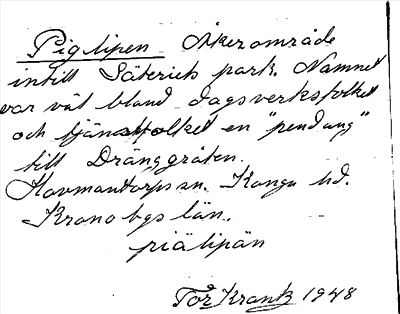 Piglipen Åkerområde
intill Säteriets park. Namnet
var väl bland dagsverksfolket
och tjänstfolket en "pendang"
till Dränggråten.
Hovmantorps sn. Konga hd.
Kronobgs län.
piälipän
Tor Krank 1948